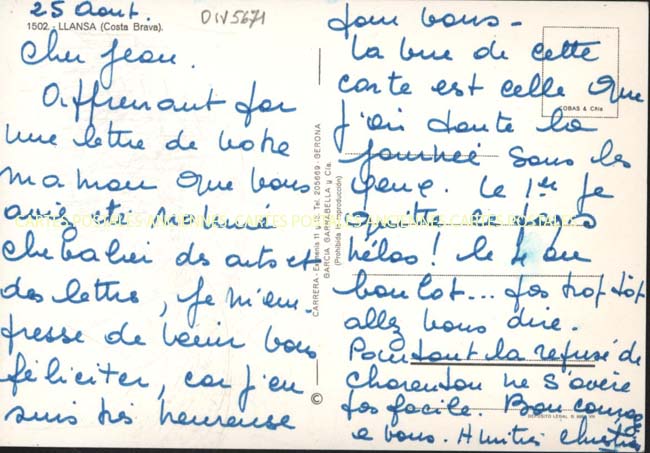 25 Aout.
DIV5671
1502 - LLANSA (Costa Brava).
Cher Jean.
Apprenant par
une lettre de votre
maman que vous
aviez été nommé
chevalier des arts et
des lettres, je m'em-
presse de venir vous
féliciter, car j'en
suis très heureuse
pour vous -
La vue de cette
carte est celle que
j'ai toute la
journée sous les
yeux. Le 1er je
quitte
hélas! le 4 au
boulot... pas trop tôt
allez vous dire.
Pourtant la refuse de
Charenton ne s'avère
pas facile. Bon courage
a vous. Amitiés Christian
COBAS & Cñia
CARRERA - Eximenis 11 y 12. Tel. 205669 - GERONA
GARCIA GARRABELLA y Cía.
(Prohibida la reproducción)
©
DEPOSITO LEGAL B.
CARTES POSTALES ANCIENNES CARTES POSTALES ANCIENNES CARTES POSTALES ANCIENNES